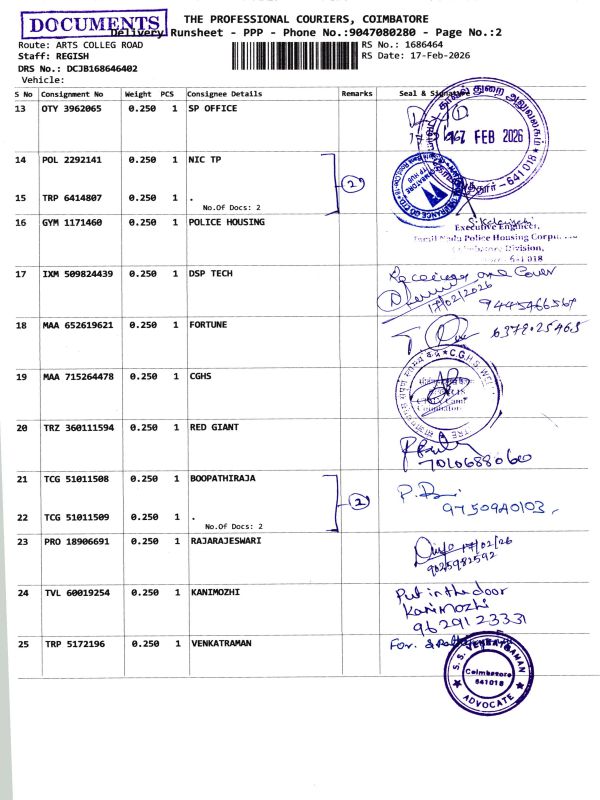 DOCUMENTS
THE PROFESSIONAL COURIERS, COIMBATORE
Delivery Runsheet - PPP - Phone No.:9047080280 - Page No.:2
Route: ARTS COLLEG ROAD
RS No.: 1686464
Staff: REGISH
RS Date: 17-Feb-2026
DRS No.: DCJB168646402
Vehicle:
S No Consignment No Weight PCS Consignee Details Remarks Seal & Signature
13 OTY 3962065 0.250 1 SP OFFICE
FEB 2026
641018
14 POL 2292141 0.250 1 NIC TP
2
15 TRP 6414807 0.250 1 .
No.Of Docs: 2
16 GYM 1171460 0.250 1 POLICE HOUSING
Executive Engineer,
Tamil Nadu Police Housing
Coimbatore Division,
17 IXM 509824439 0.250 1 DSP TECH
Received one Cover
17/02/2026
18 MAA 652619621 0.250 1 FORTUNE
19 MAA 715264478 0.250 1 CGHS
C.G.H.S.
20 TRZ 360111594 0.250 1 RED GIANT
7010688060
21 TCG 51011508 0.250 1 BOOPATHIRAJA
2
22 TCG 51011509 0.250 1 .
No.Of Docs: 2
23 PRO 18906691 0.250 1 RAJARAJESWARI
17/02/26
9025982592
24 TVL 60019254 0.250 1 KANIMOZHI
Put in the door
Kanimozhi
9629123331
25 TRP 5172196 0.250 1 VENKATRAMAN
For.
S.S. VENKATRAMAN
Coimbatore
641018
ADVOCATE